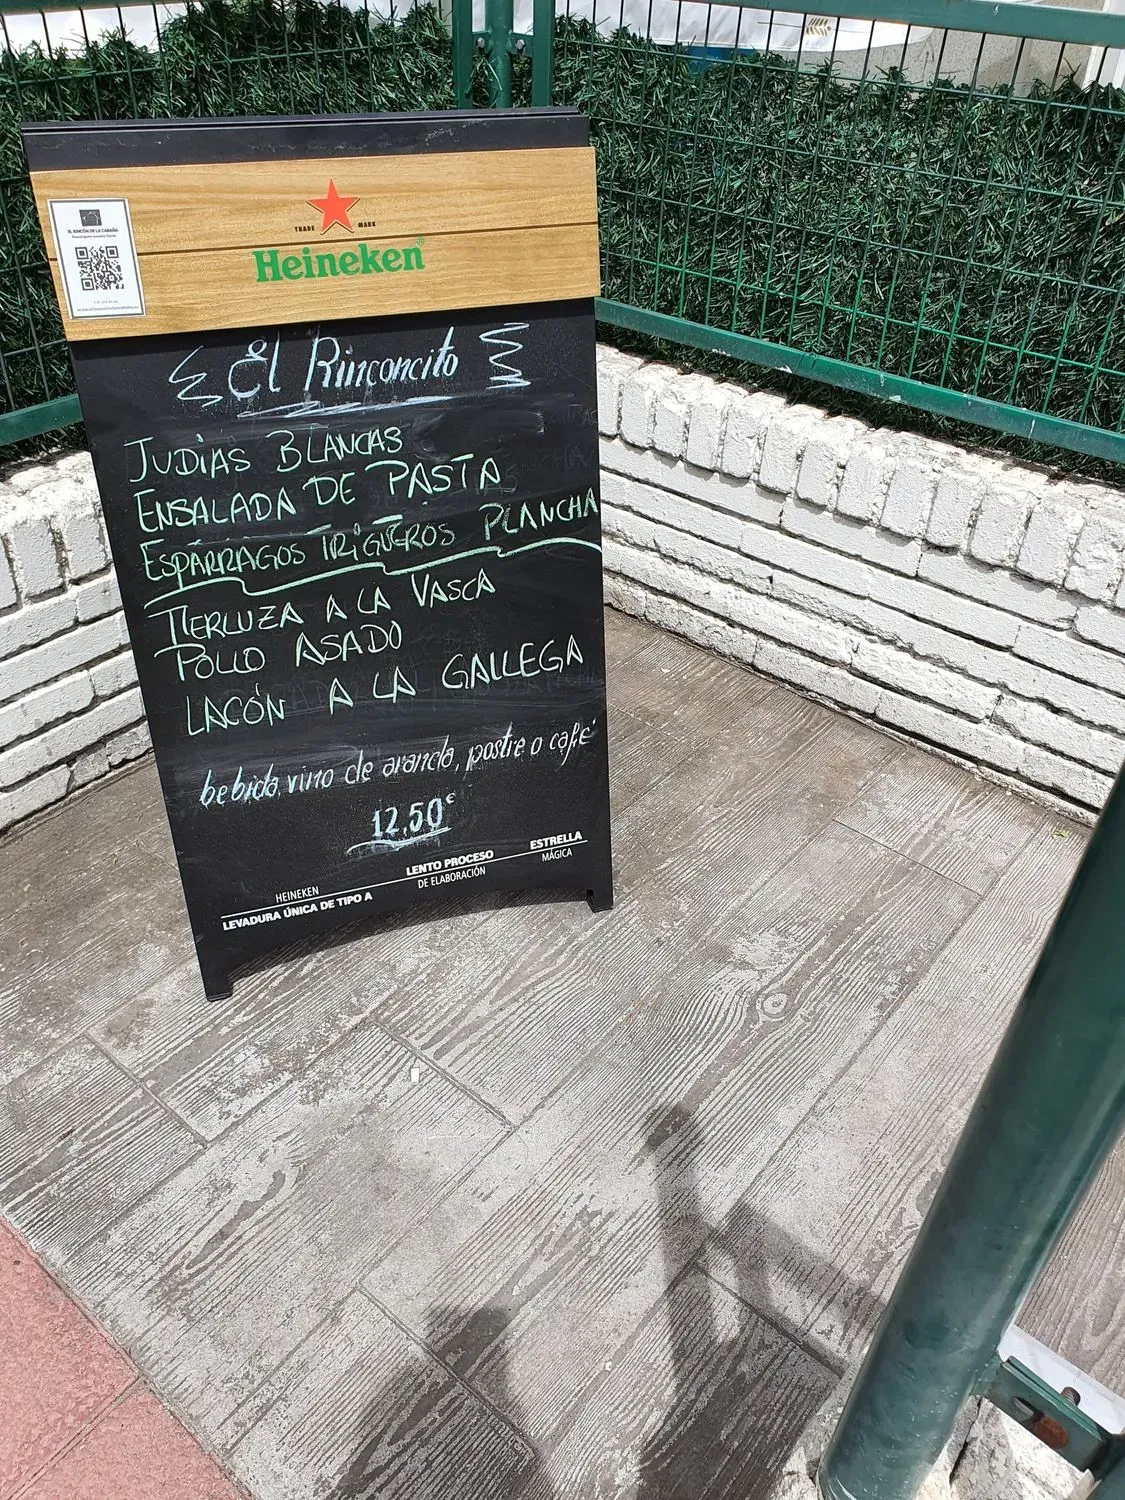 EL RINCÓN DE LA CABAÑA
TRADE MARK
Heineken
El Rinconcito
JUDIAS BLANCAS
ENSALADA DE PASTA
ESPÁRRAGOS TRIGUEROS PLANCHA
MERLUZA A LA VASCA
POLLO ASADO
LACÓN A LA GALLEGA
bebida, vino de aranda, postre o café
12,50€
HEINEKEN LENTO PROCESO ESTRELLA
LEVADURA ÚNICA DE TIPO A DE ELABORACIÓN MÁGICA